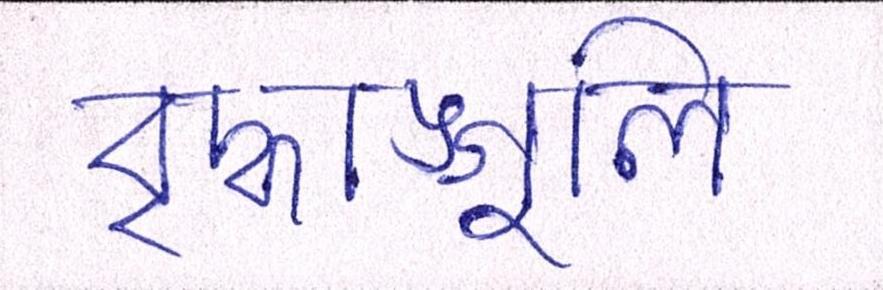 বৃদ্ধাঙ্গুলি